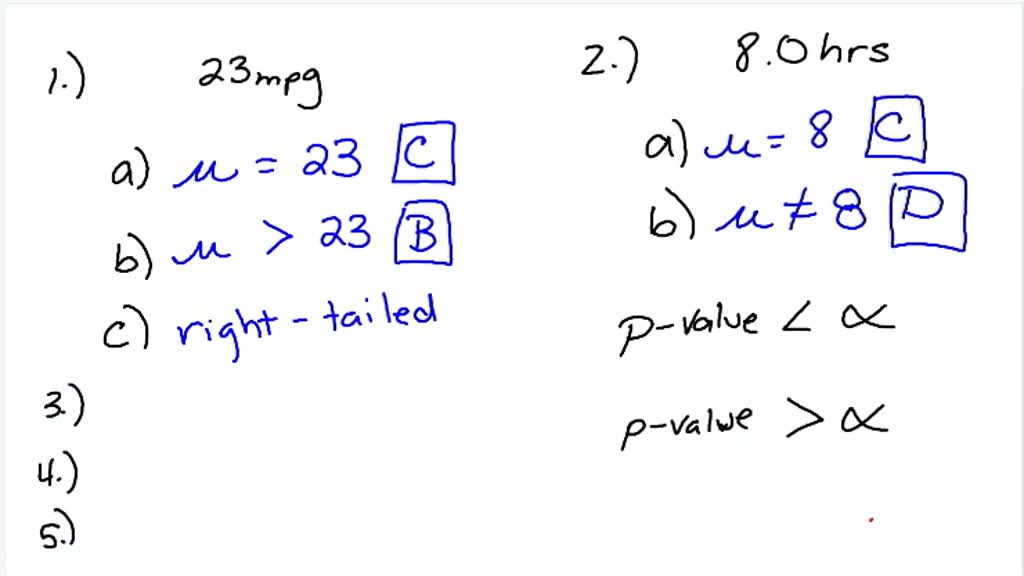 1.) 23mpg
a) μ = 23 C
b) μ > 23 B
c) right-tailed
3.)
4.)
5.)
2.) 8.0 hrs
a) μ = 8 C
b) μ ≠ 8 D
p-value < α
p-value > α